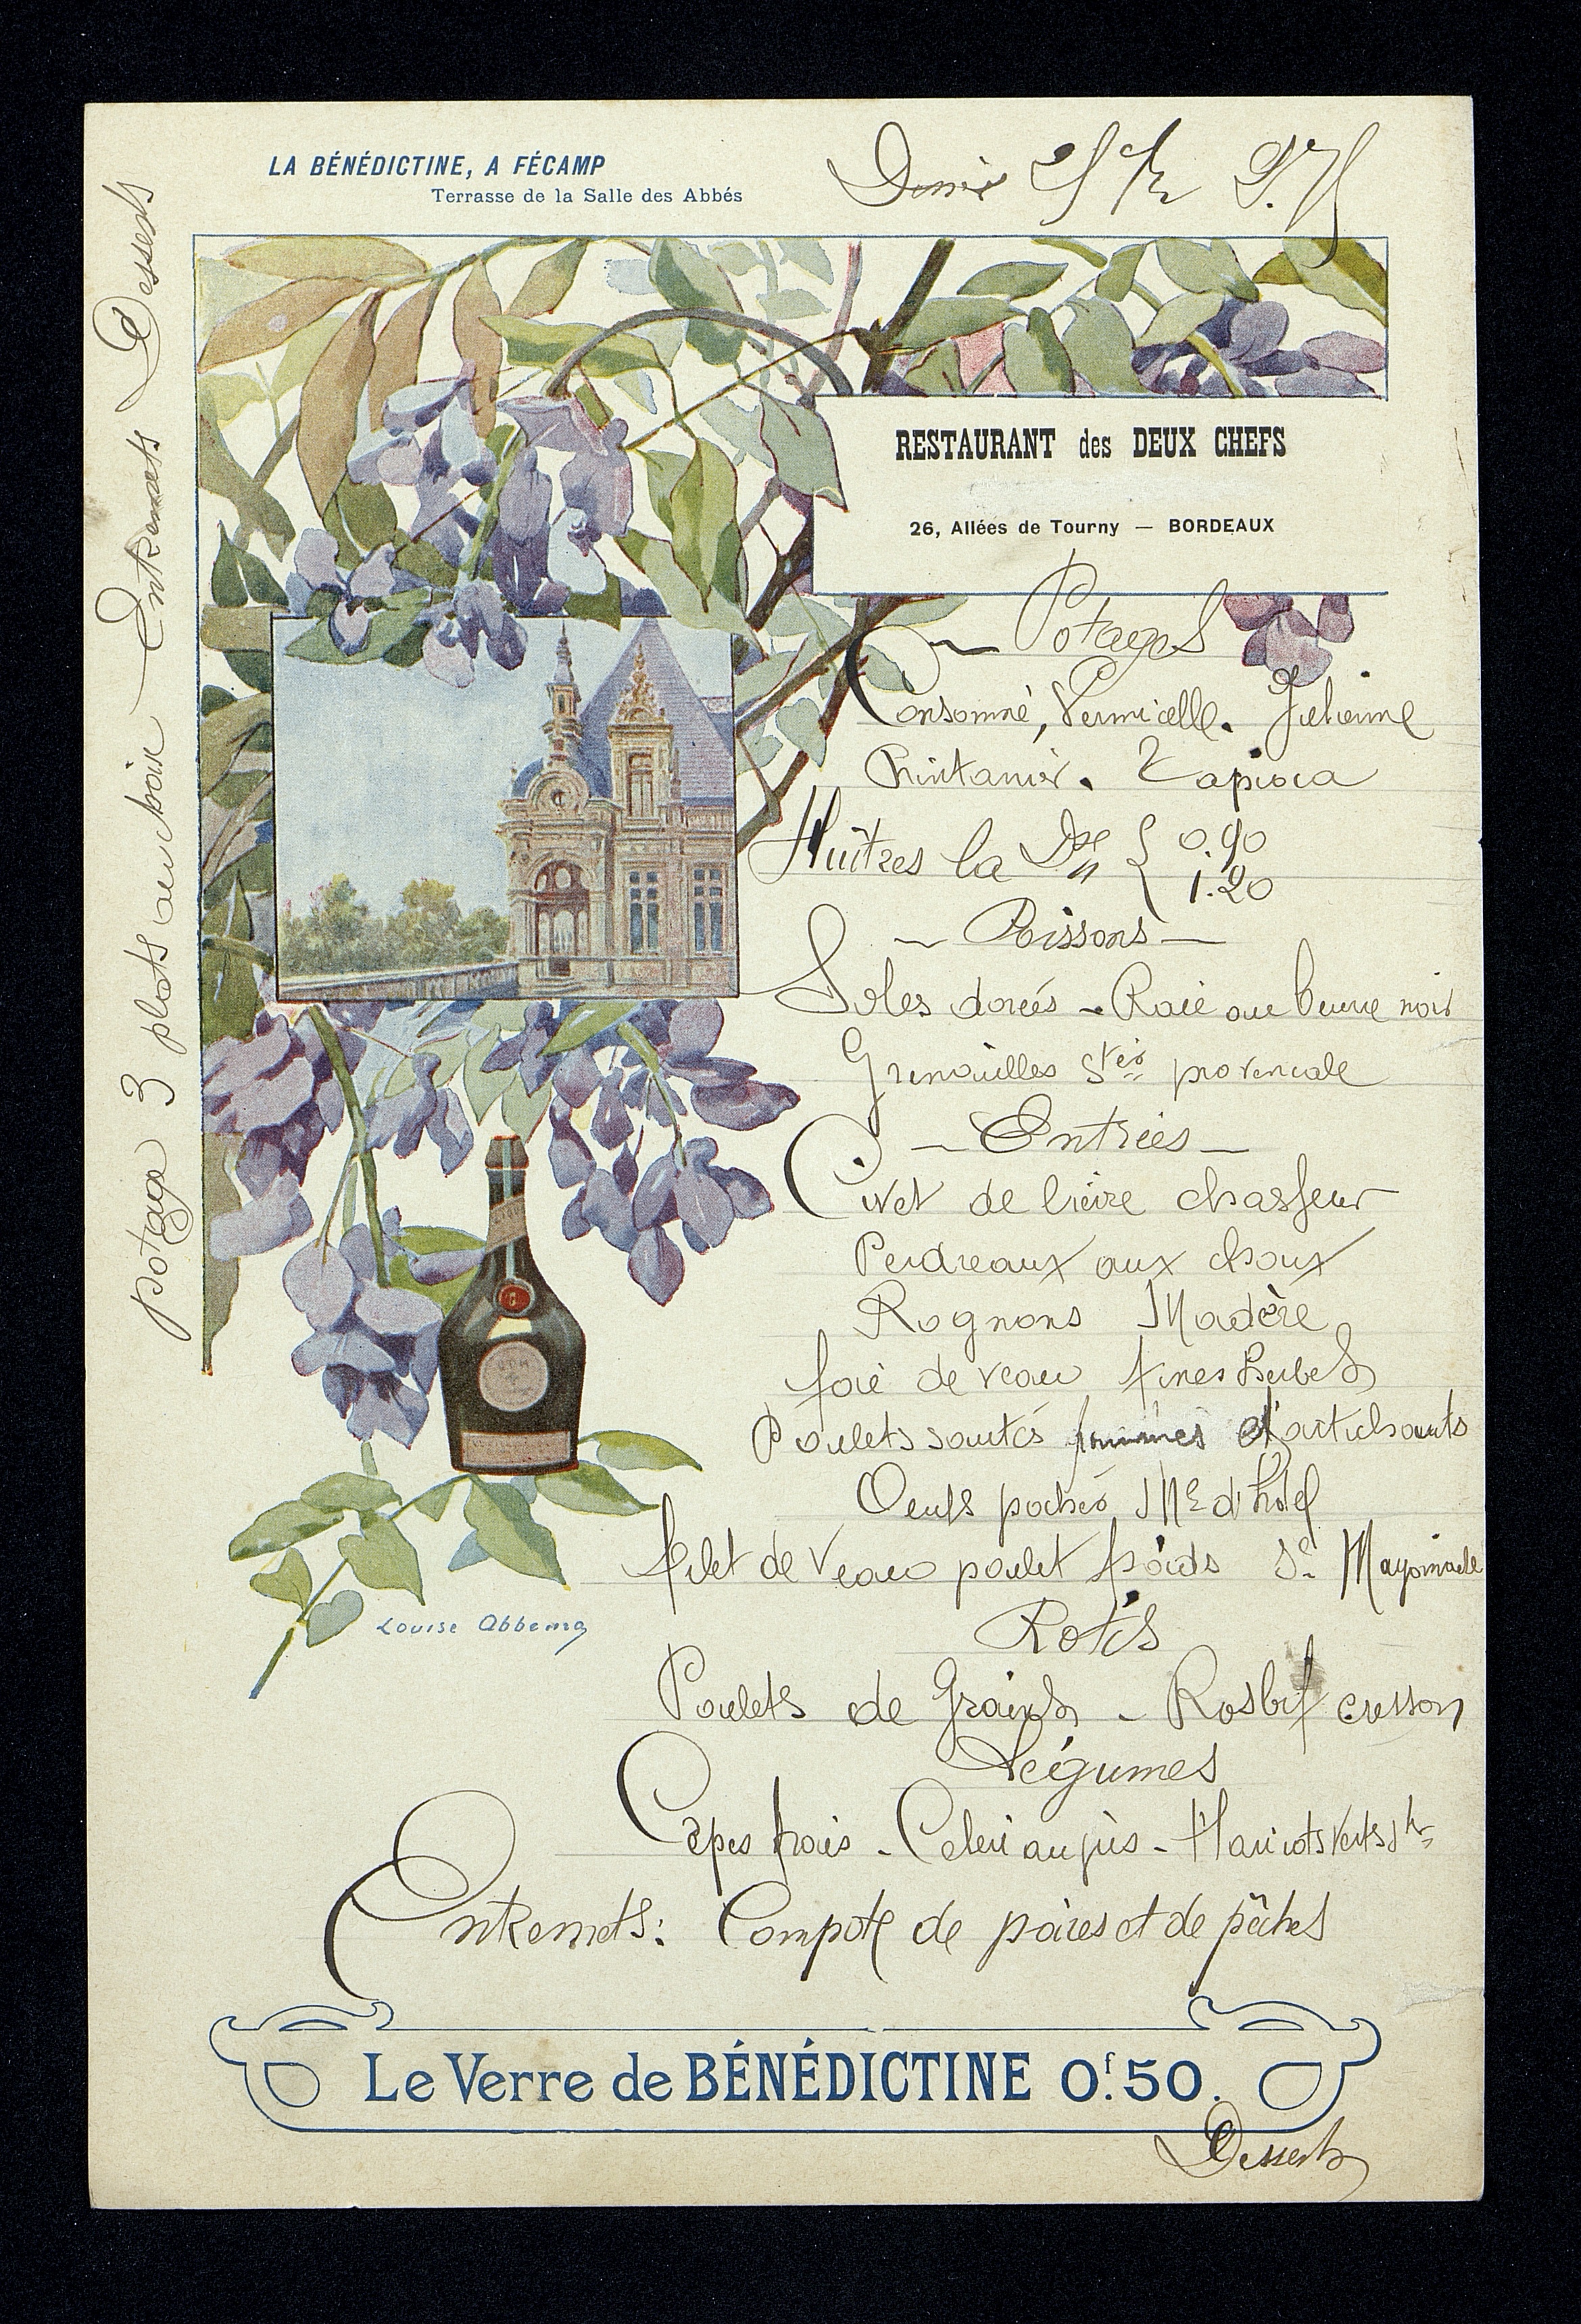 LA BÉNÉDICTINE, A FÉCAMP
Terrasse de la Salle des Abbés
RESTAURANT des DEUX CHEFS
26, Allées de Tourny — BORDEAUX
Potages
Consommé, Vermicelle. Julienne
Printanier. Tapioca
Huîtres la Dne { 0.90
1.20
— Poissons —
Soles dorées - Raie au beurre noir
Grenouilles Stés provencale
— Entrées —
Civet de lièvre chasseur
Perdreaux aux choux
Rognons Madère
foie de veau fines herbes
Poulets sautés d'artichauts
Oeufs pochés Me d'hotel
filet de Veau poulet froids Se Mayonnaise
Rotis
Poulets de Grains - Rosbif cresson
Légumes
Cèpes frais - Celeri au jus - Haricots Verts
Entremets: Compote de poires et de pêches
Le Verre de BÉNÉDICTINE 0f.50.
Desserts
potage 3 plats au choix - Entremets Desserts
Louise Abbema